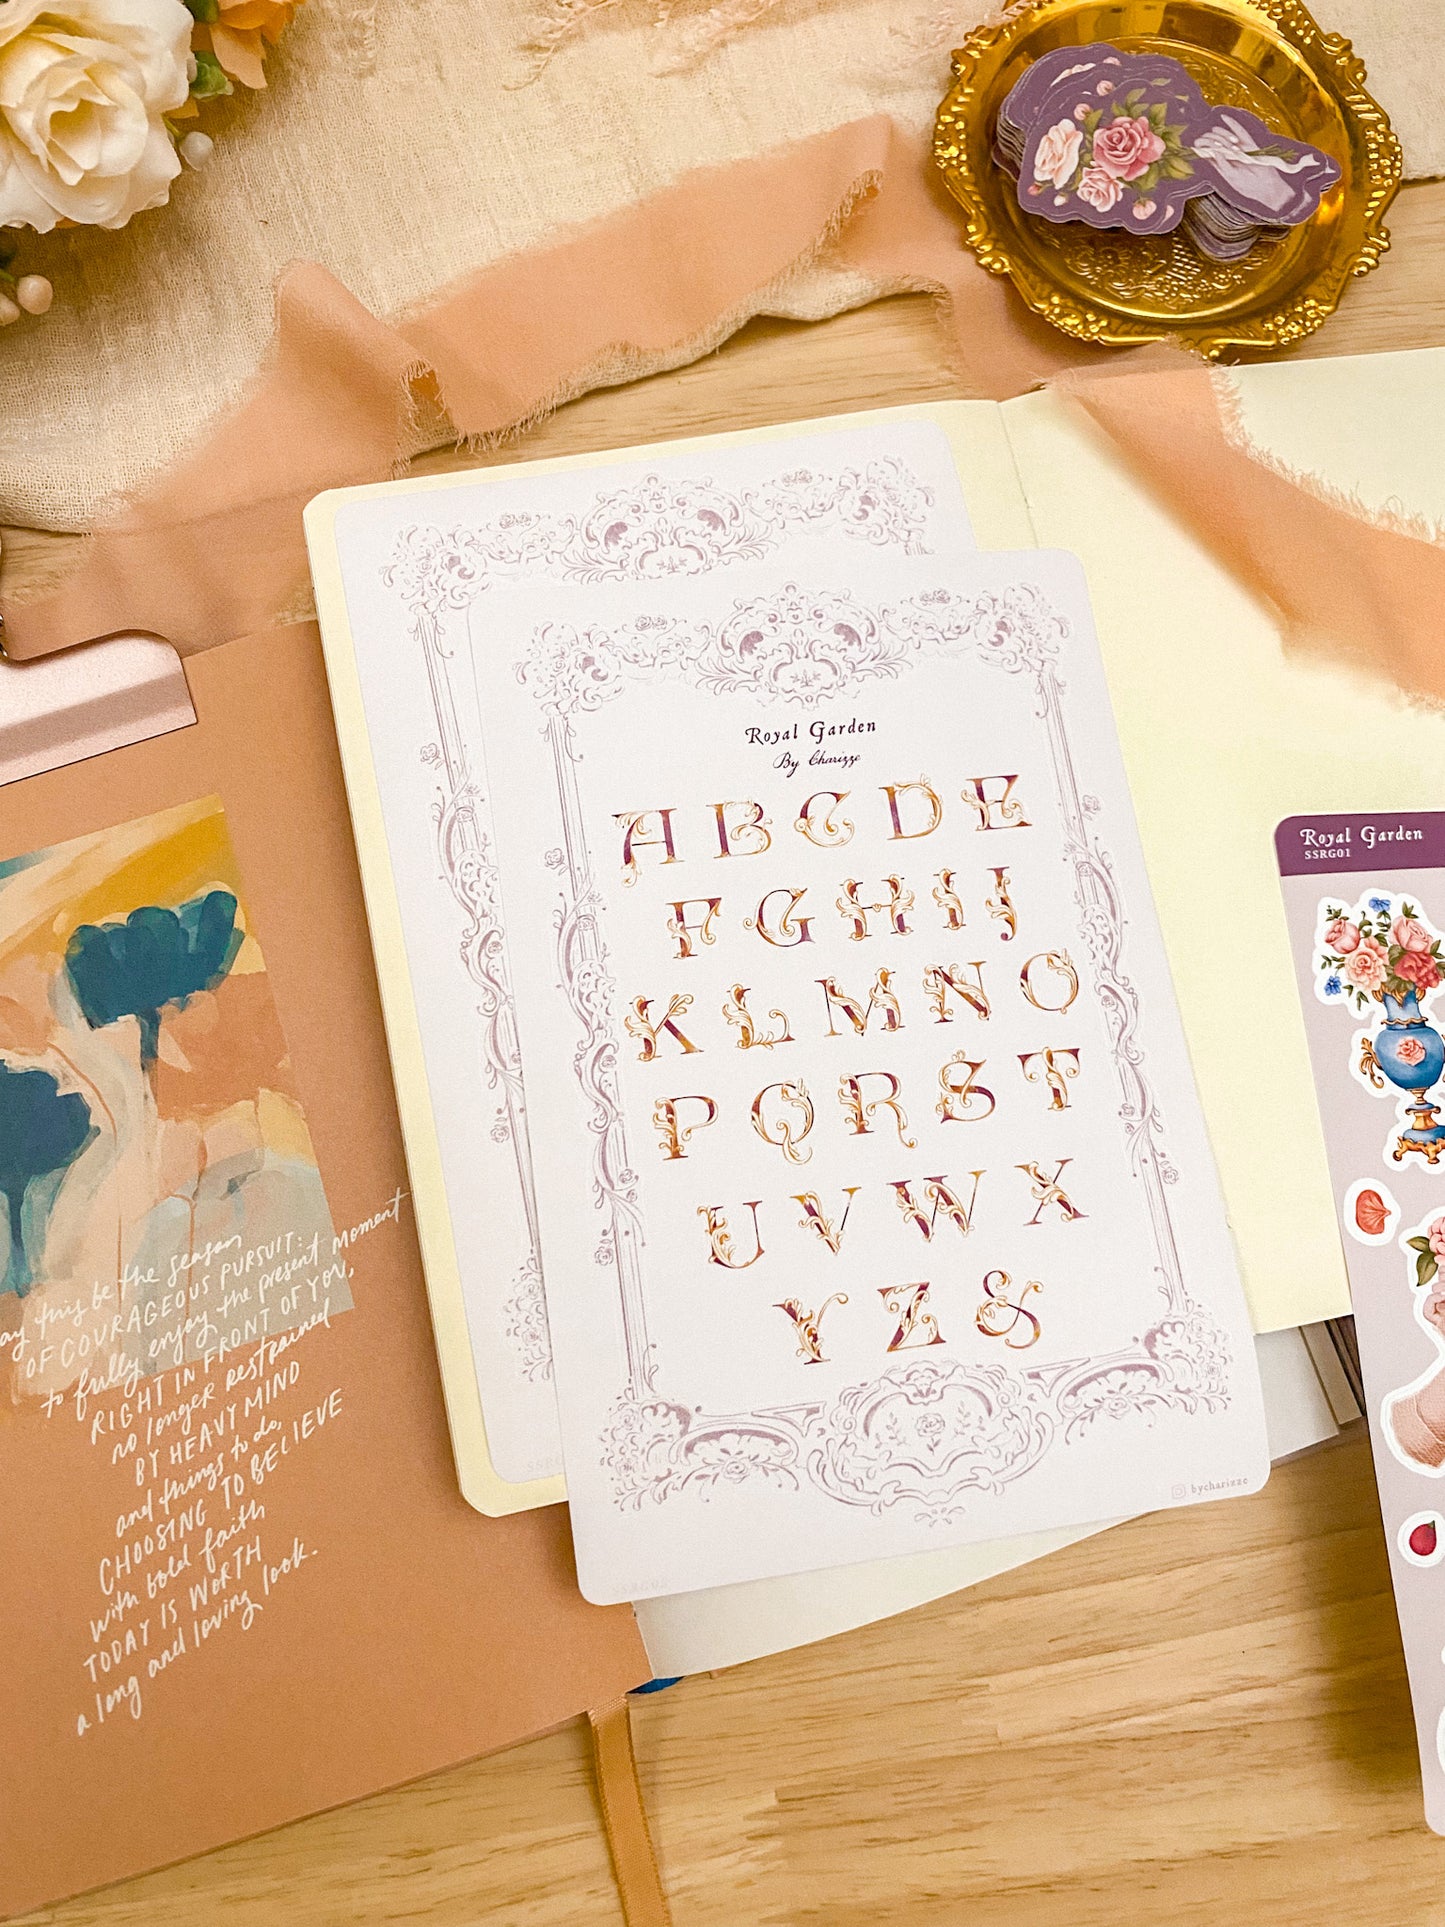 Royal Garden
By Charizze
A B C D E
F G H I J
K L M N O
P Q R S T
U V W X
Y Z &
bycharizze
Royal Garden
SSRG01
this be the season
OF COURAGEOUS PURSUIT:
to fully enjoy the present moment
RIGHT IN FRONT OF YOU,
no longer restrained
BY HEAVY MIND
and things to do,
CHOOSING TO BELIEVE
with bold faith
TODAY IS WORTH
a long and loving look.